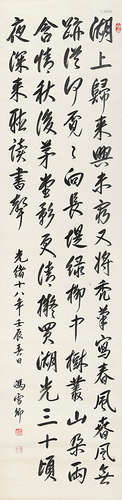 湖上歸來興未窮又將禿筆寫春風春風無
跡從何覓只向長堤綠柳中樹叢山朵兩
含情秋後茅堂影更清擬買湖光三十頃
夜深來聽讀書聲
光緒十八年壬辰春日
馮雪卿